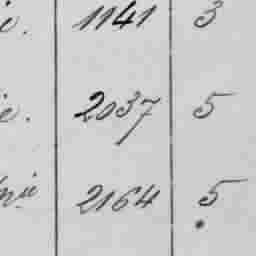 e. 1141 3
e. 2037 5
nie 2164 5